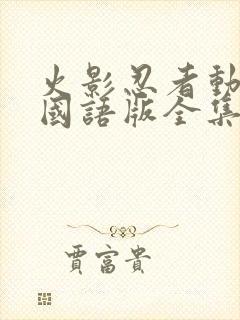 火影忍者動
國語版全集
賈富貴